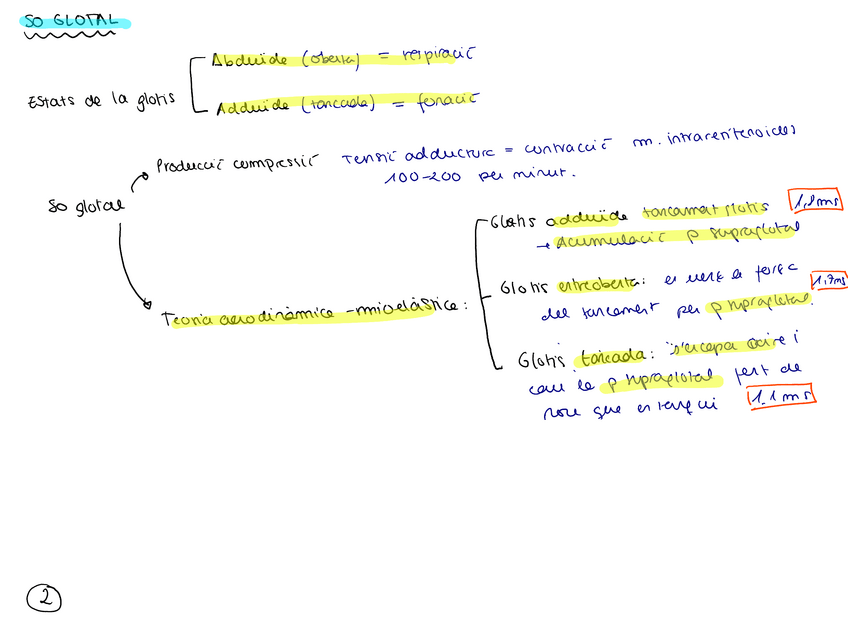 SO GLOTAL
Abduïda (oberta) = respiració
Estats de la glotis
Adduïda (tancada) = fonació
Producció compressió Tensió adductora = contracció m. intraaritenoides
100-200 per minut.
So glotal
Glotis adduïda tancament glotis
→ Acumulació p supraglotal
Glotis entreoberta: es venç la força 1,7ms
del tancament per p supraglotal.
Teoria aerodinàmica - mioelàstica:
Glotis tancada: s'escapa aire i
cau la p supraglotal fent de
nou que es tanqui 1.1ms
2